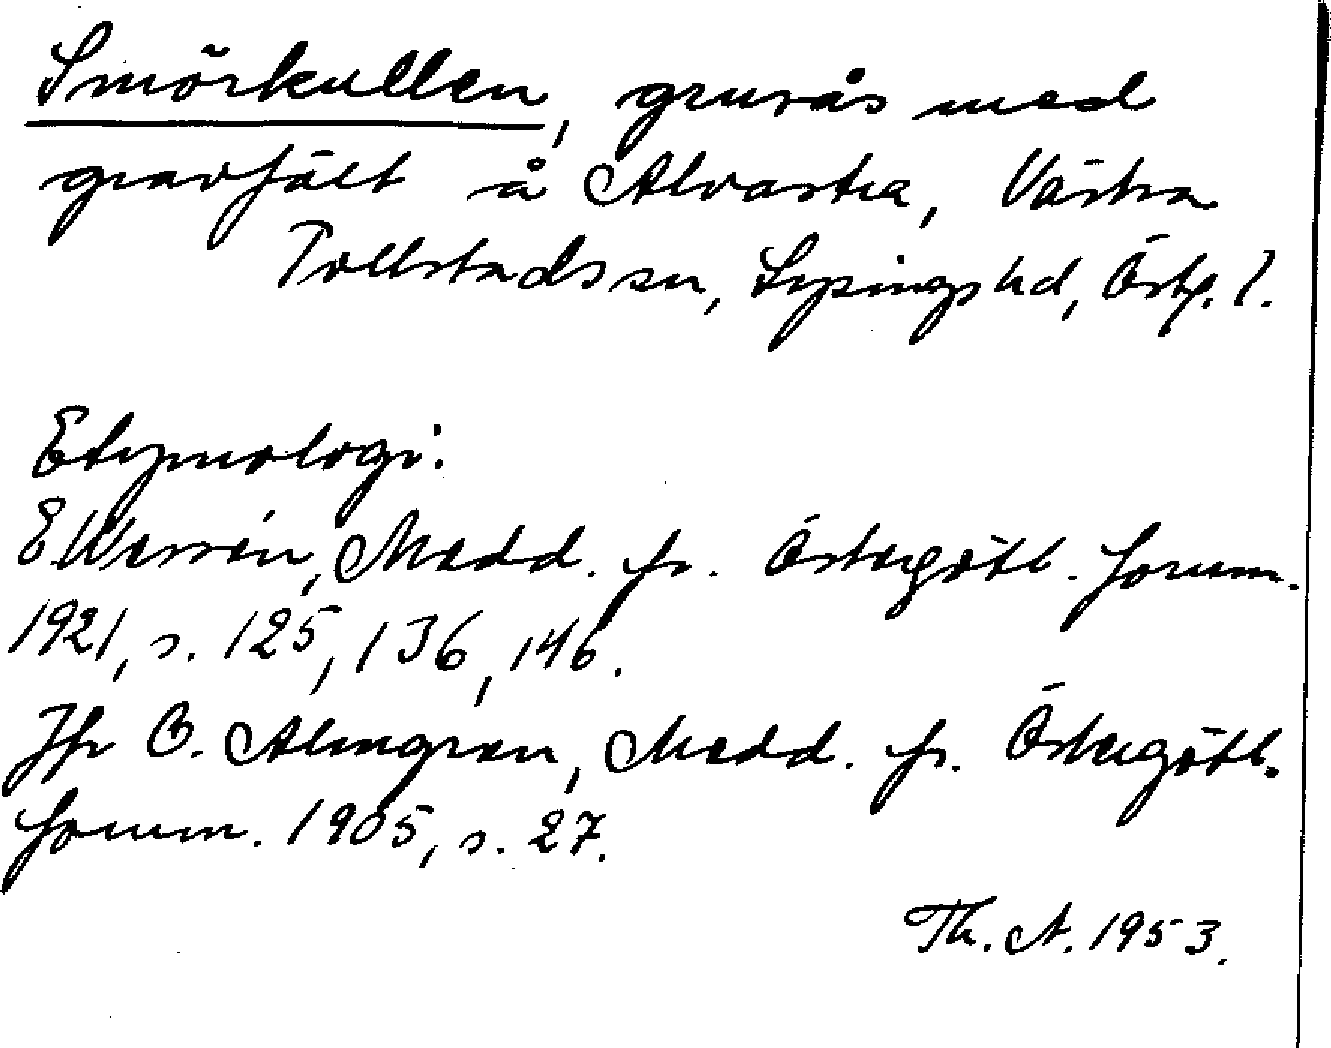 Smörkullen, grusås med
gravfält å Alvastra, Västra
Tollstads sn, Lysings hd, Östg. l.
Etymologi:
E Wessén, Medd. fr. Östergötl. fornm.
1921, s. 125, 136, 146.
Jfr O. Almgren, Medd. fr. Östergötl.
fornm. 1905, s. 27.
Th. A. 1953.